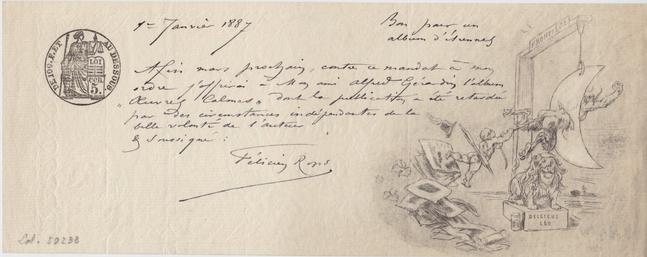 1er Janvier 1887
Bon pour un
album d'étrennes
DE 100 F. ET AU DESSOUS
LOI
5.
Afin mars prochain, contre ce mandat à mon
ordre j'offrirai à Mon ami Alfred Gérardin l'album
"Œuvres Calmes" dont la publication a été retardée
par des circonstances indépendantes de la
belle volonté de l'auteur
& soussigné :
Félicien Rops
BELGICUS
LEO
Col. 59238